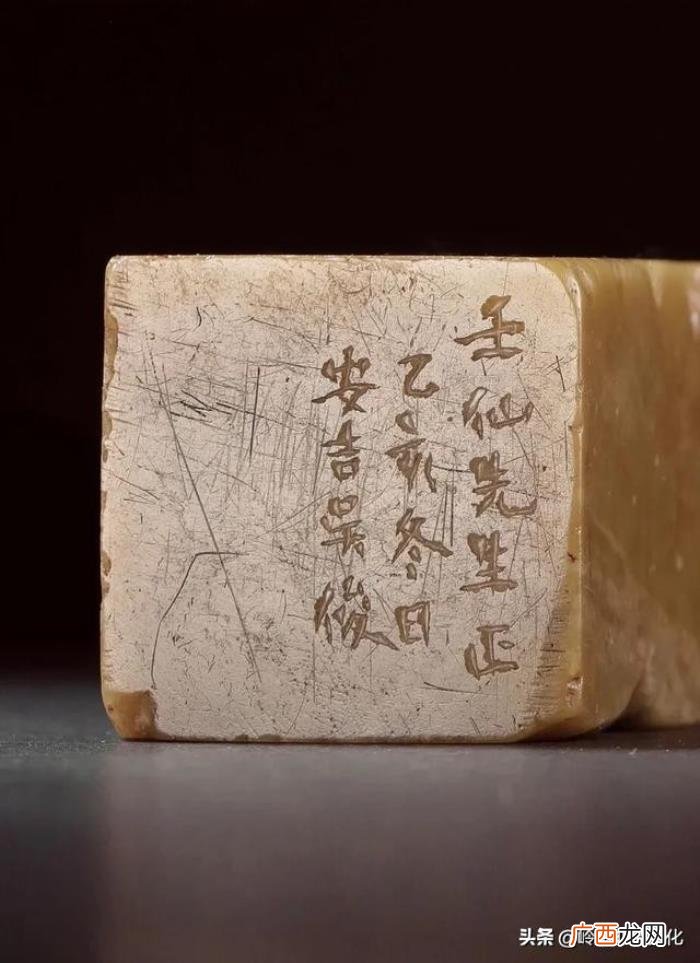 壬仙先生正
乙亥冬日
安吉吴俊
头条 @岭
广西龙网
化